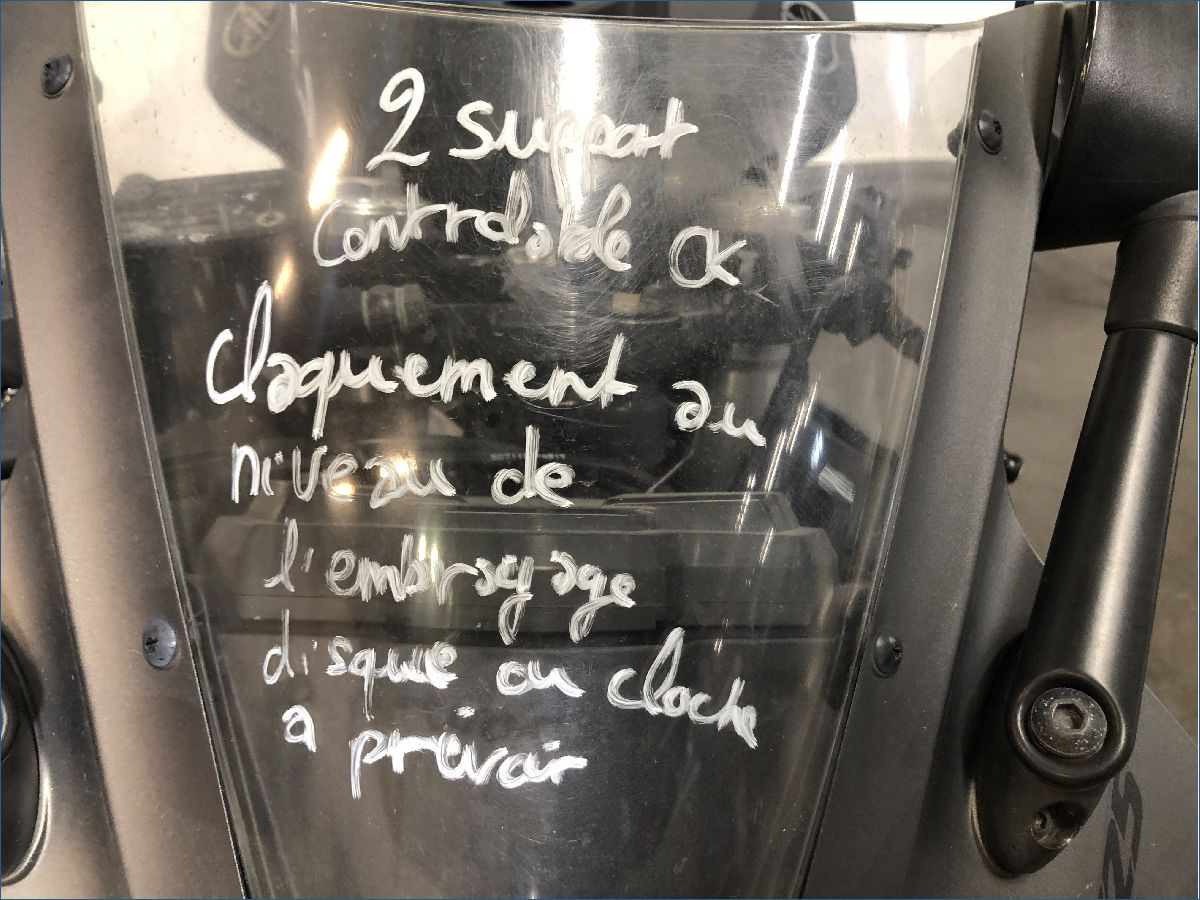 2 support
Controlable OK
Claquement au
niveau de
l'embrayage
disque ou cloche
a prévoir